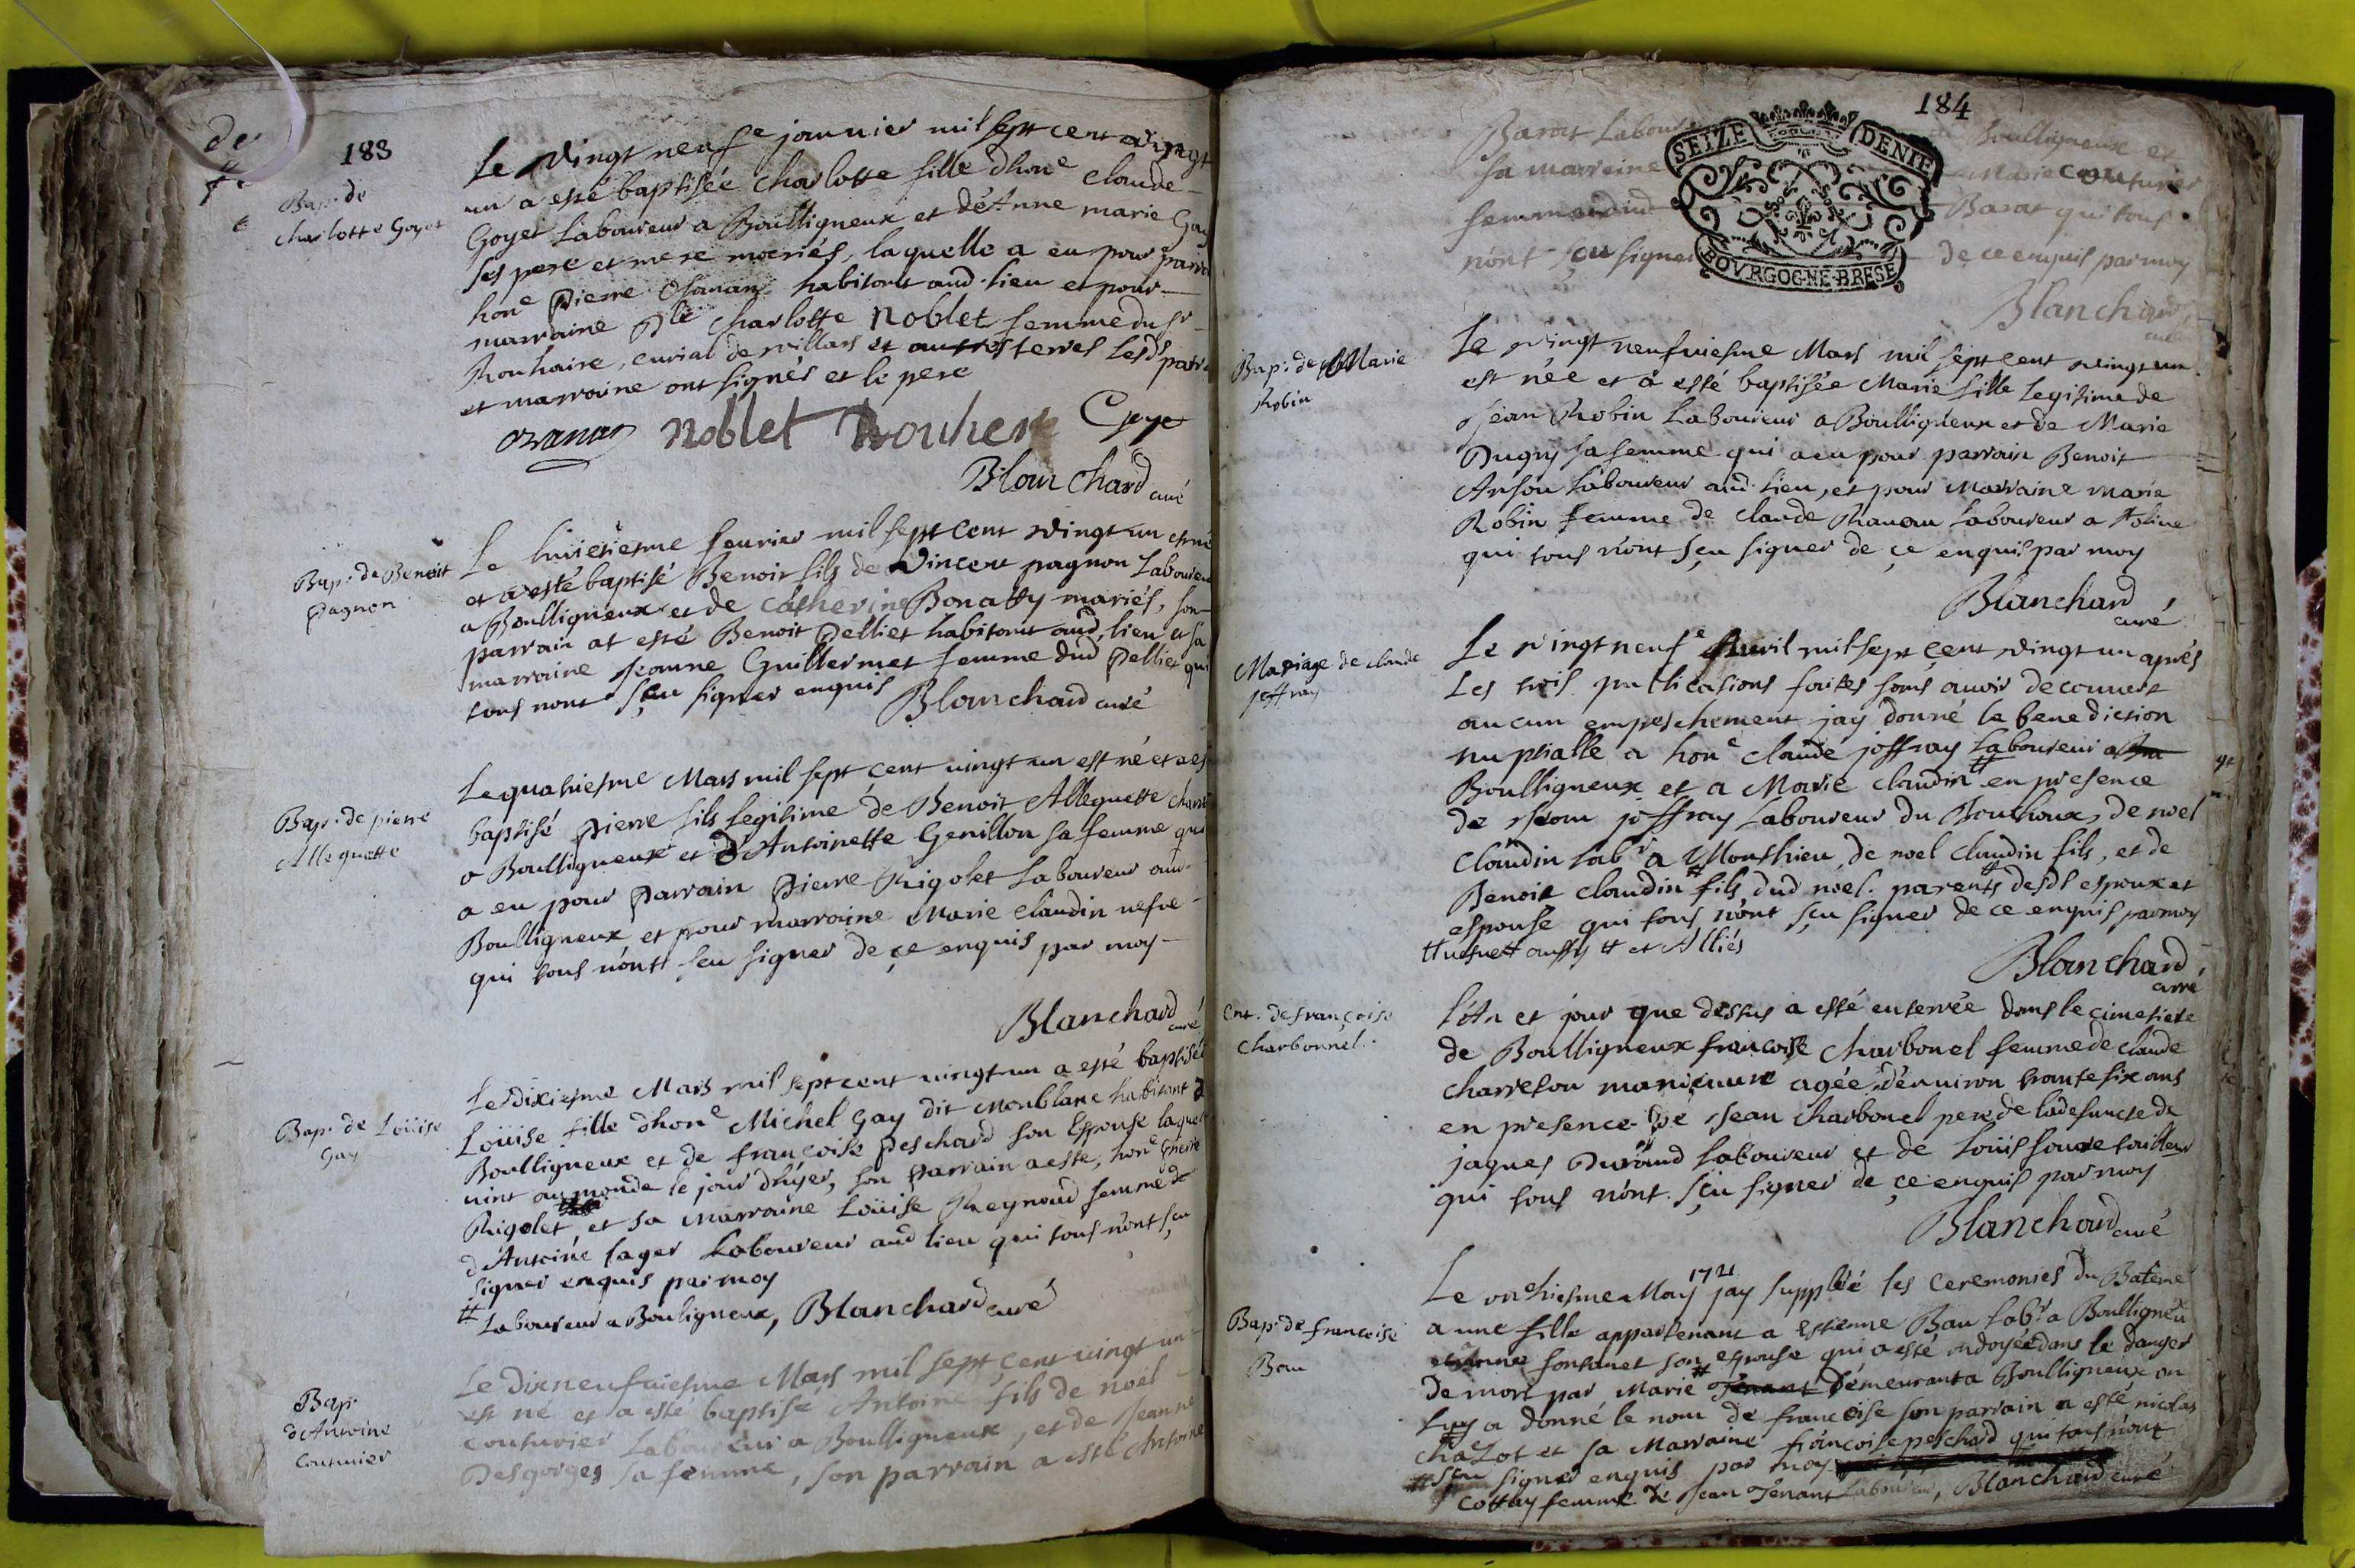 183
Bap. de
charlotte Goyet
Le vingt neuf e januier mil sept cent vingt
un a esté baptisée charlotte fille dhon e claude
Goyet laboureur a Boulligneux et d'Anne marie
ses pere et mere mariés, laquelle a eu pour
hon e pierre habitant aud. lieu et pour
marraine Dle charlotte noblet femme du sr
Rouhaire, curial de villars et autres terres lesds
et marraine ont signés et le pere
ozanan noblet Rouhere Goye
Blanchard curé
Bap. de Benoit
pagnon
Le huitiesme feurier mil sept cent vingt un est né
et a esté baptisé Benoit fils de Vincent pagnon laboureur
a Boulligneux et de catherine Bonatty mariés, son
parrain at esté Benoit pelliet habitant aud. lieu et sa
marraine jeanne Guillermet femme dud pelliet qui
tous nont sçeu signer enquis Blanchard curé
Bap. de pierre
Alleguette
Le quatriesme Mars mil sept cent vingt un est né et a esté
baptisé pierre fils legitime de Benoit Alleguette
a Boulligneux et d'Antoinette Genillon sa femme qui
a eu pour parrain pierre Rigolet laboureur aud
Boulligneux et pour marraine Marie claudin
qui tous n'ont sçeu signer de ce enquis par moy
Blanchard curé
Bap. de Loüise
Gay
Le dixiesme Mars mil sept cent vingt un a esté baptisée
Loüise fille dhon e Michel Gay dit Monblanc habitant a
Boulligneux et de françoise peschard son Epouse laquelle
vint au monde le jour d'hyer, son parrain a esté, hon e
Rigolet et sa marraine Loüise Reynaud femme de
d'Antoine lager laboureur aud lieu qui tous n'ont sçu
signer enquis par moy
# Laboureur a Bouligneux, Blanchard curé
Bap.
d'Antoine
Couturier
Le dixneufuiesme Mars mil sept cent vingt un
est né et a esté baptisé Antoine fils de noel
couturier laboureur a Boulligneux, et de jeanne
Desgorges sa femme, son parrain a esté Antoine
184
SEIZE DENIE
BOVRGOGNE-BRESE
Barat Boulligneux et
sa marraine Marie couturier
femme dud Barat qui tous
n'ont sçu signer de ce enquis par moy
Blanchard
curé
Bap. de Marie
Robin
Le vingt neufuiesme Mars mil sept cent vingt un
est née et a esté baptisée Marie fille legitime de
jean Robin laboureur a Boulligneux et de Marie
Dugny sa femme qui a eu pour parrain Benoit
laboureur aud. lieu, et pour marraine marie
Robin femme de claude laboureur a
qui tous n'ont sçu signer de ce enquis par moy
Blanchard
curé
Mariage de claude
joffray
Le vingt neuf e Auril mil sept cent vingt un après
Les trois publications faites sans auoir decouuert
aucun empeschement jay donné la benediction
nuptialle a hon e claude joffray laboureur a
Boulligneux et a Marie claudin # en presence
de jean joffray laboureur du Bouchoux, de noel
Claudin lab r a Monthieu, de noel claudin fils, et de
Benoit claudin # fils dud noel. parents # desds espoux et
espouse qui tous n'ont sçu signer de ce enquis par moy
# # aussy # et Alliés
Blanchard
curé
Ent. de françoise
charbonnel.
l'An et jour que dessus a esté enterrée dans le cimetiere
de Boulligneux françoise charbonel femme de claude
charreton manieuure agée d'enuiron trante six ans
en presence de jean charbonel pere de la defuncte de
jaques Durand laboureur et de Loüis
qui tous n'ont sçu signer de ce enquis par moy
Blanchard curé
Bap. de françoise
Bau
Le onziesme May 1721 jay suppléé les ceremonies du Bateme
a une fille appartenant a estienne Bau lab r a Boulligneu
et Anne fontanet son espouse qui a esté ondoyée dans le danger
de mort par Marie # Tenant demeurant a Boulligneux on
luy a donné le nom de françoise son parrain a esté nicolas
chalot et sa Marraine françoise peschard qui tous n'ont
sçeu signer enquis par moy
# cottay femme de jean Tenant laboureur, Blanchard curé